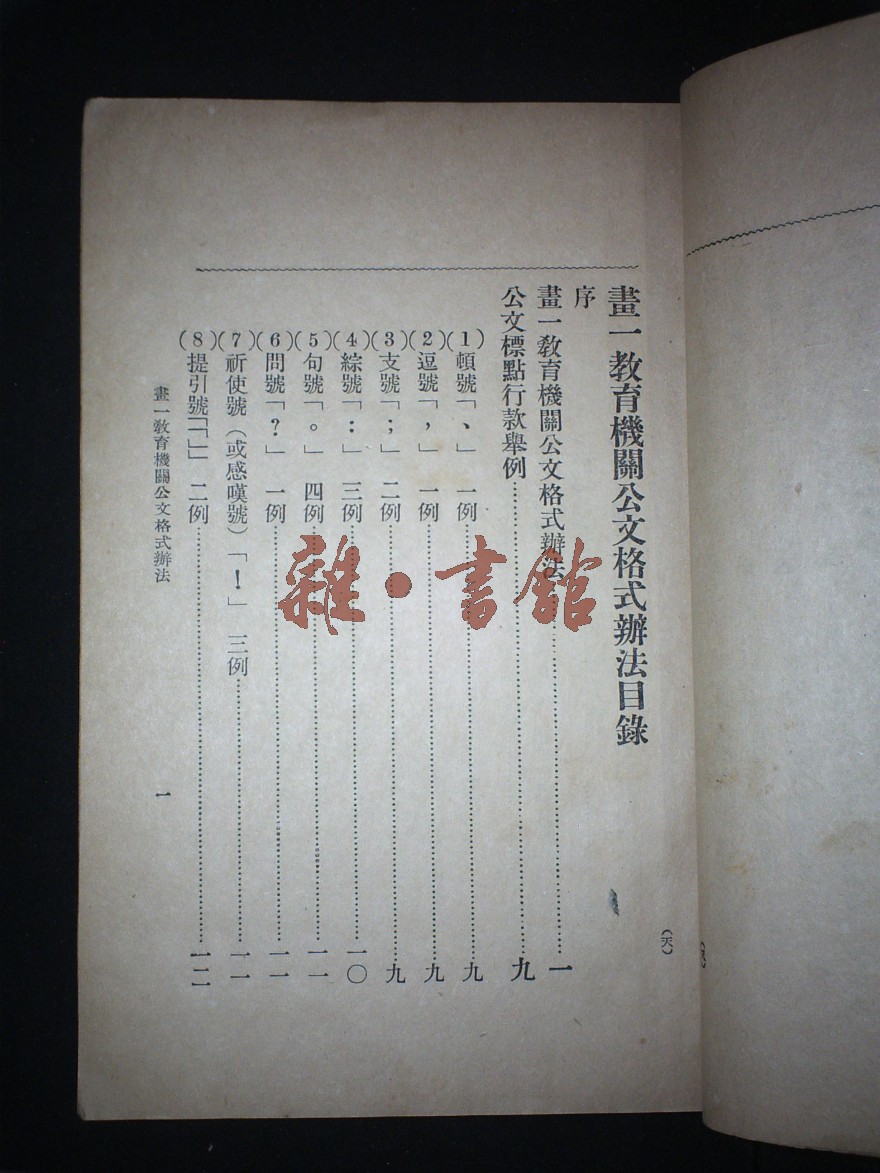 畫一教育機關公文格式辦法目錄
序
畫一教育機關公文格式辦法……一
公文標點行款舉例……九
(1)頓號「、」 一例……九
(2)逗號「，」 一例……九
(3)支號「；」 二例……九
(4)綜號「：」 三例……一〇
(5)句號「。」 四例……一一
(6)問號「？」 一例……一一
(7)祈使號（或感嘆號）「！」 三例……一一
(8)提引號「「」」 二例……一二
畫一教育機關公文格式辦法
一
雜·書館